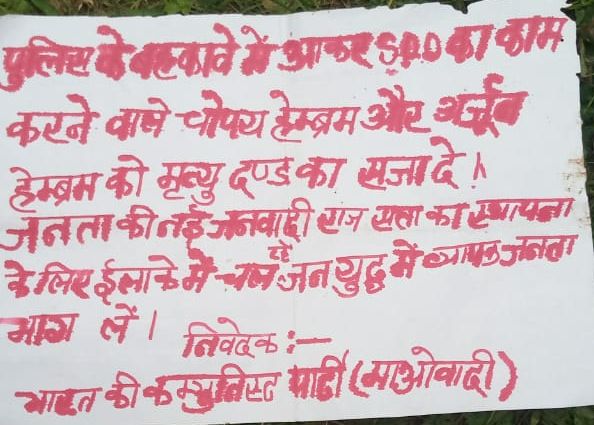 पुलिस के बहकावे में आकर S.P.O का काम
करने वाले चोपय हेम्ब्रम और अर्जुन
हेम्ब्रम को मृत्यु दण्ड का सजा दे!
जनता की नई जनवादी राज सत्ता का स्थापना
के लिए ईलाके में चल रहे जन युद्ध में व्यापक जनता
भाग लें।
निवेदक :—
भारत की कम्युनिस्ट पार्टी (माओवादी)